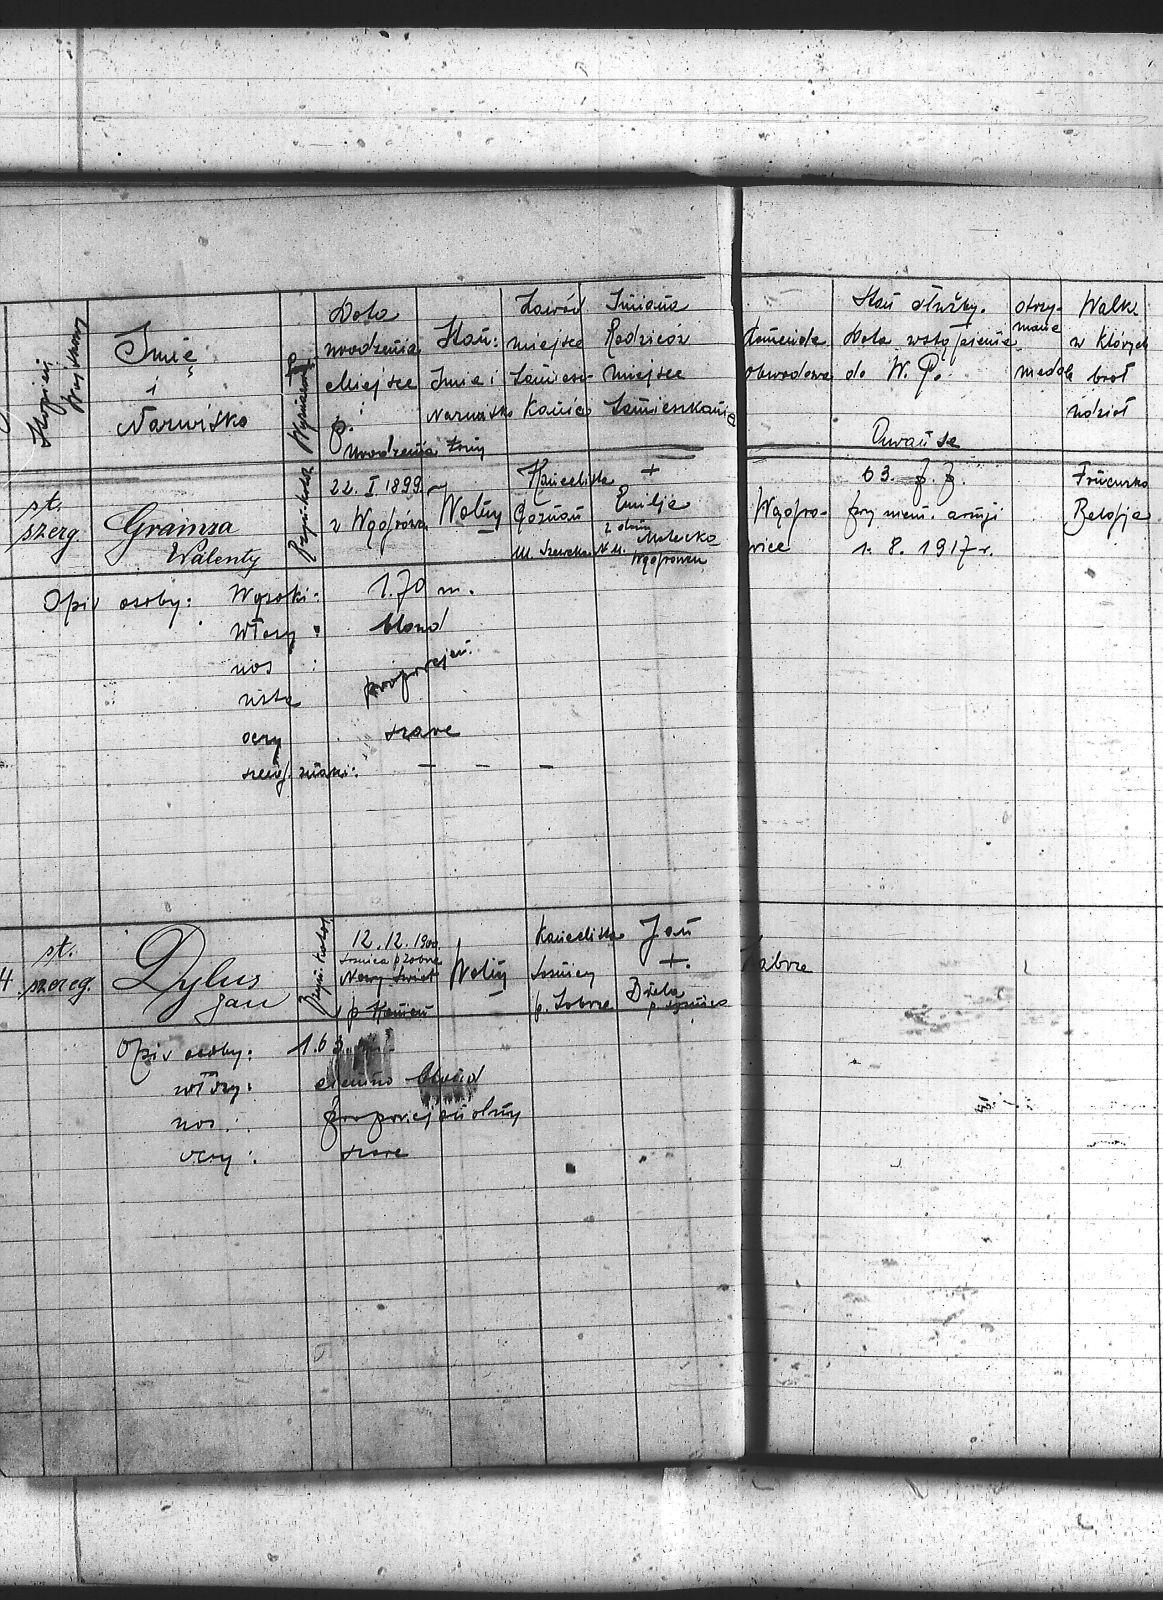 Stopień Wojskowy
Imię
i
Nazwisko
Wyznanie
Data
urodzenia
Miejsce
i
p.
urodzenia
Stan:
Imie i
Nazwisko
żony
Zawód
miejsce
Zamiesz-
kania
Imiona
Rodziców
miejsce
Zamieszkania
Komenda
obwodowa
Stan służby.
Data wstąpienia
do W. P.
Awanse
otrzy-
mane
medale
Walki
w których
brał
udział
st.
szerg.
Grainza
Walenty
Rzym. katol.
22. I 1899.
Wolny
Kancelista
Poznań
ul. Szewska
+
Emilja
z domu
Malecka
Wągro-
wiec
63. p. p.
przy niem. armji
1. 8. 1917 r.
Francuska
Belgja
Opis osoby: Wysoki: 1.70 m.
włosy: blond
nos :
usta
proporcjon.
oczy szare
szczeg. znaki: — — —
4. st.
szereg.
Dylus
Jan
Rzym. katol.
12. 12. 1900.
Nowy Świat
p. Kamień
Wolny
Kancelista
p. Zabrze
Jan
+.
Zabrze
Opis osoby: 1.63
włosy: ciemno-blond
nos : proporcjonalny
oczy : szare